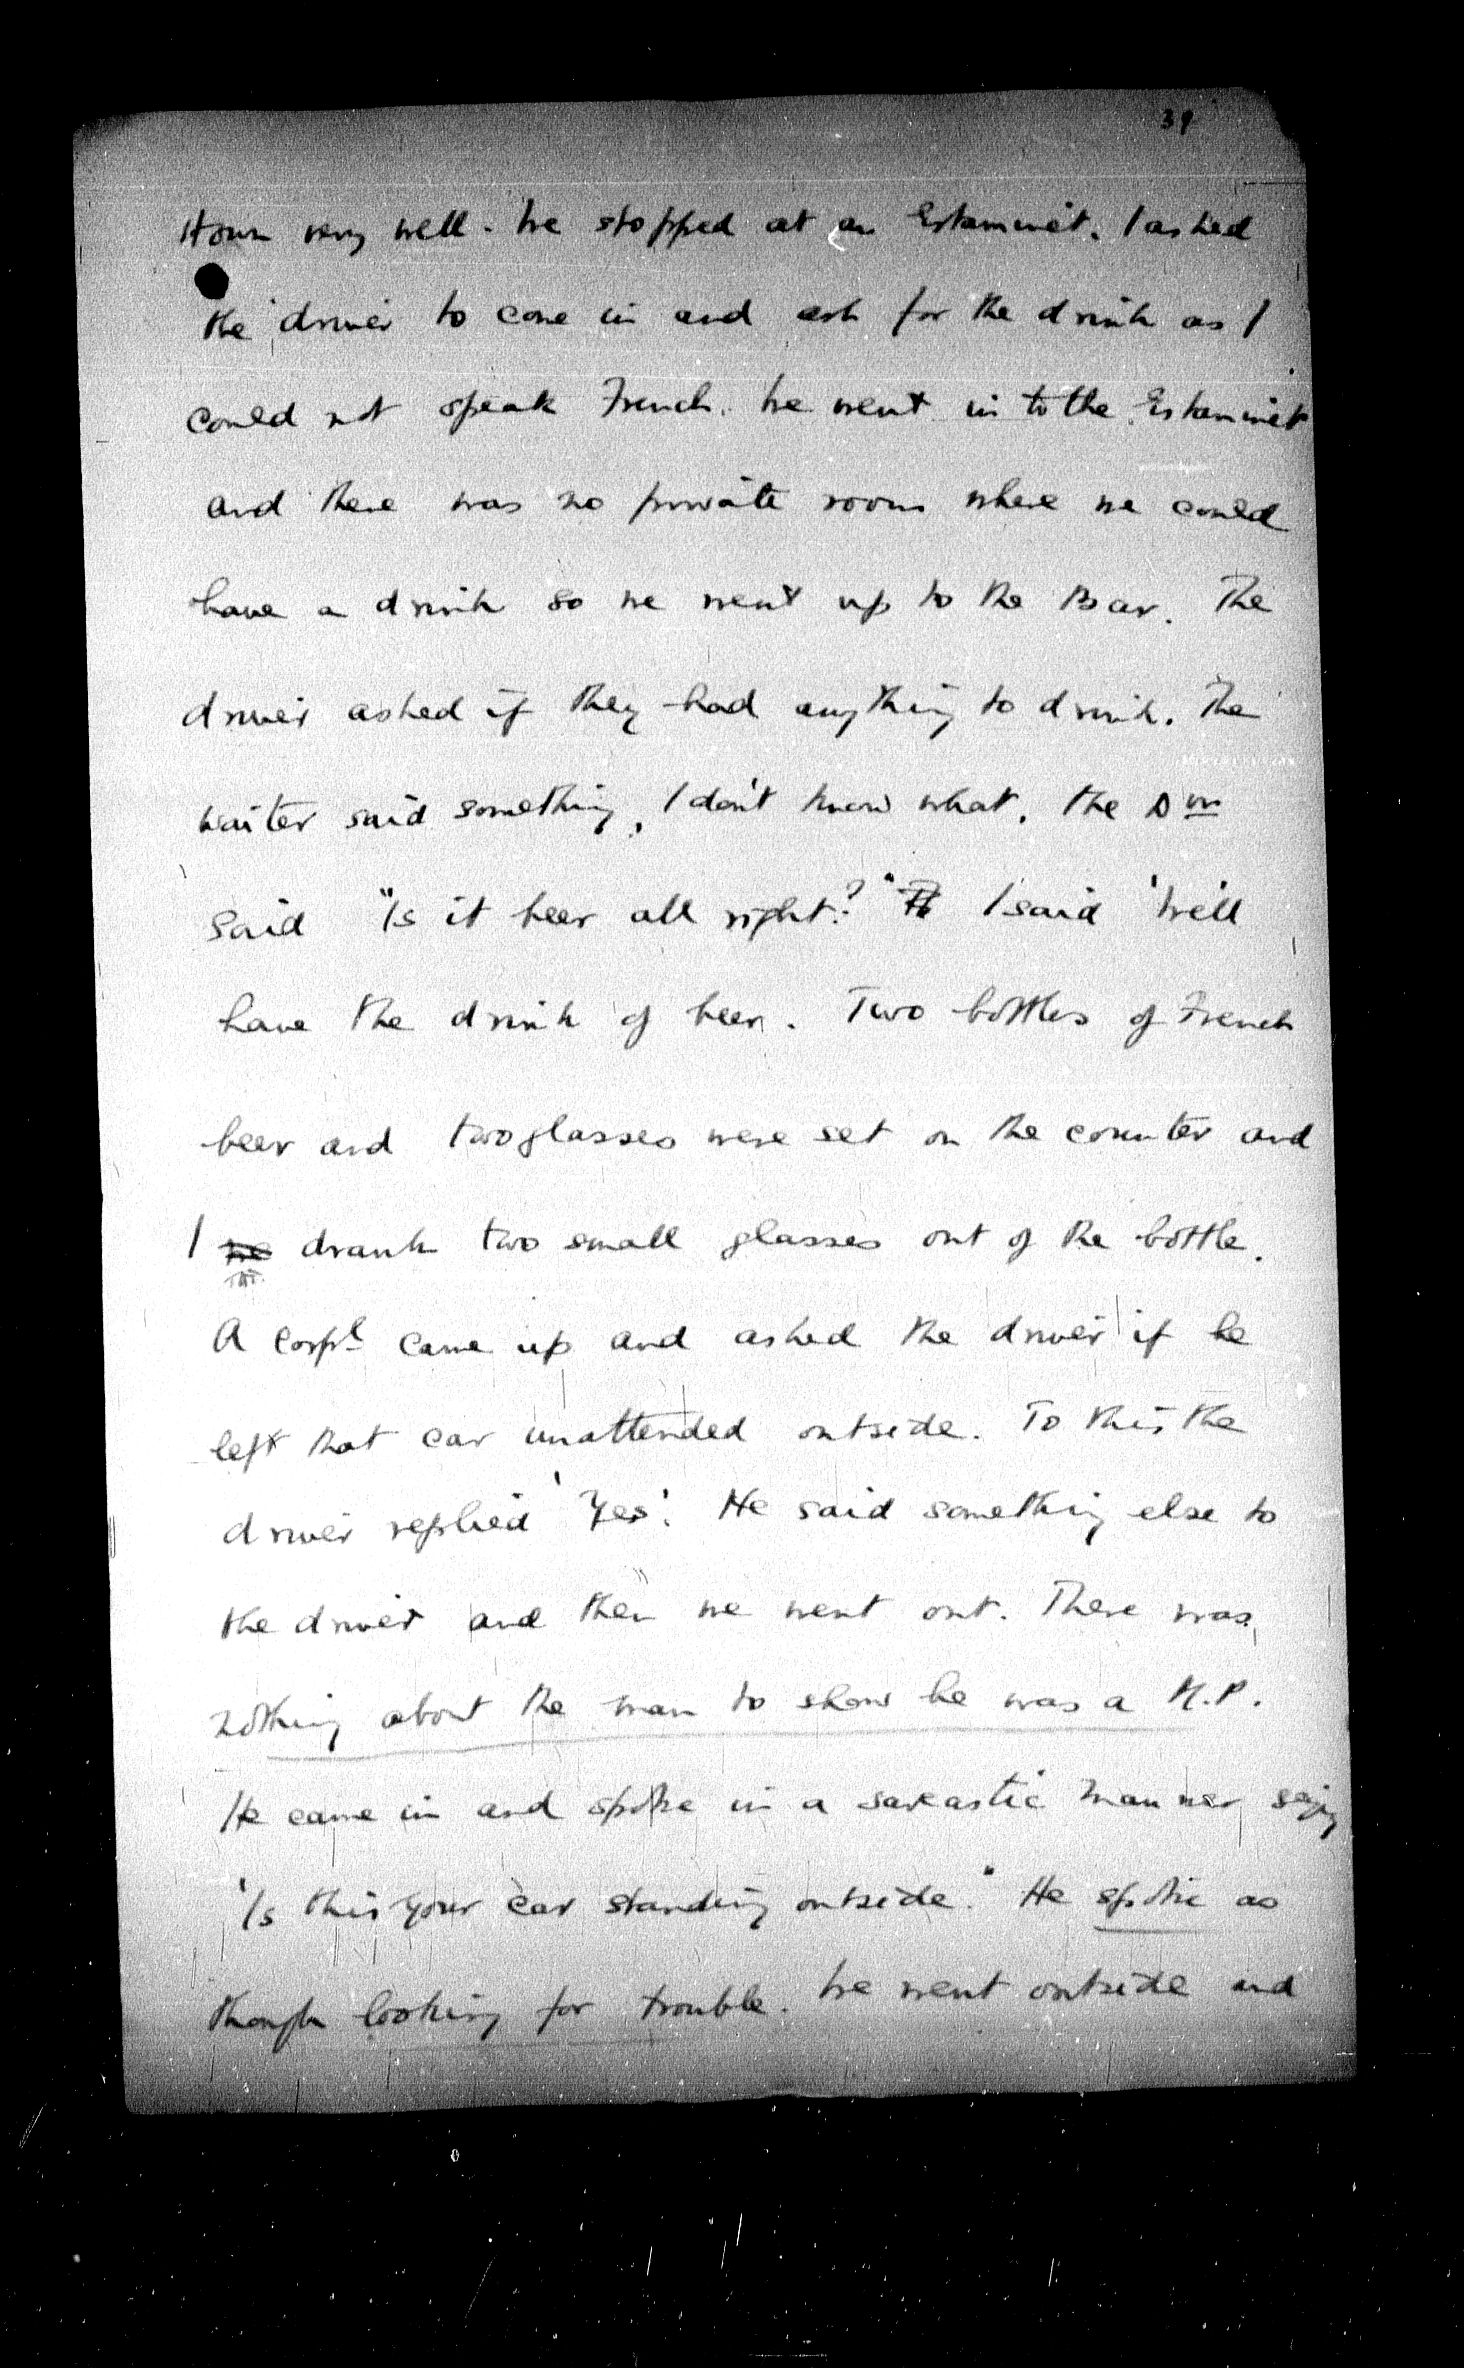 39
town very well. We stopped at an Estaminet. I asked
the driver to come in and ask for the drink as I
could not speak French. We went in to the Estaminet
and there was no private room where we could
have a drink so we went up to the Bar. The
driver asked if they had anything to drink. The
waiter said something, I don't know what. The Dvr
said "Is it beer all right?" I said 'We'll
have the drink of beer. Two bottles of French
beer and two glasses were set on the counter and
I we drank two small glasses out of the bottle.
A Corpl came up and asked the driver if he
left that car unattended outside. To this the
driver replied 'Yes'. He said something else to
the driver and then we went out. There was
nothing about the man to show he was a M.P.
He came in and spoke in a sarcastic manner saying
'Is this your car standing outside." He spoke as
though looking for trouble. We went outside and